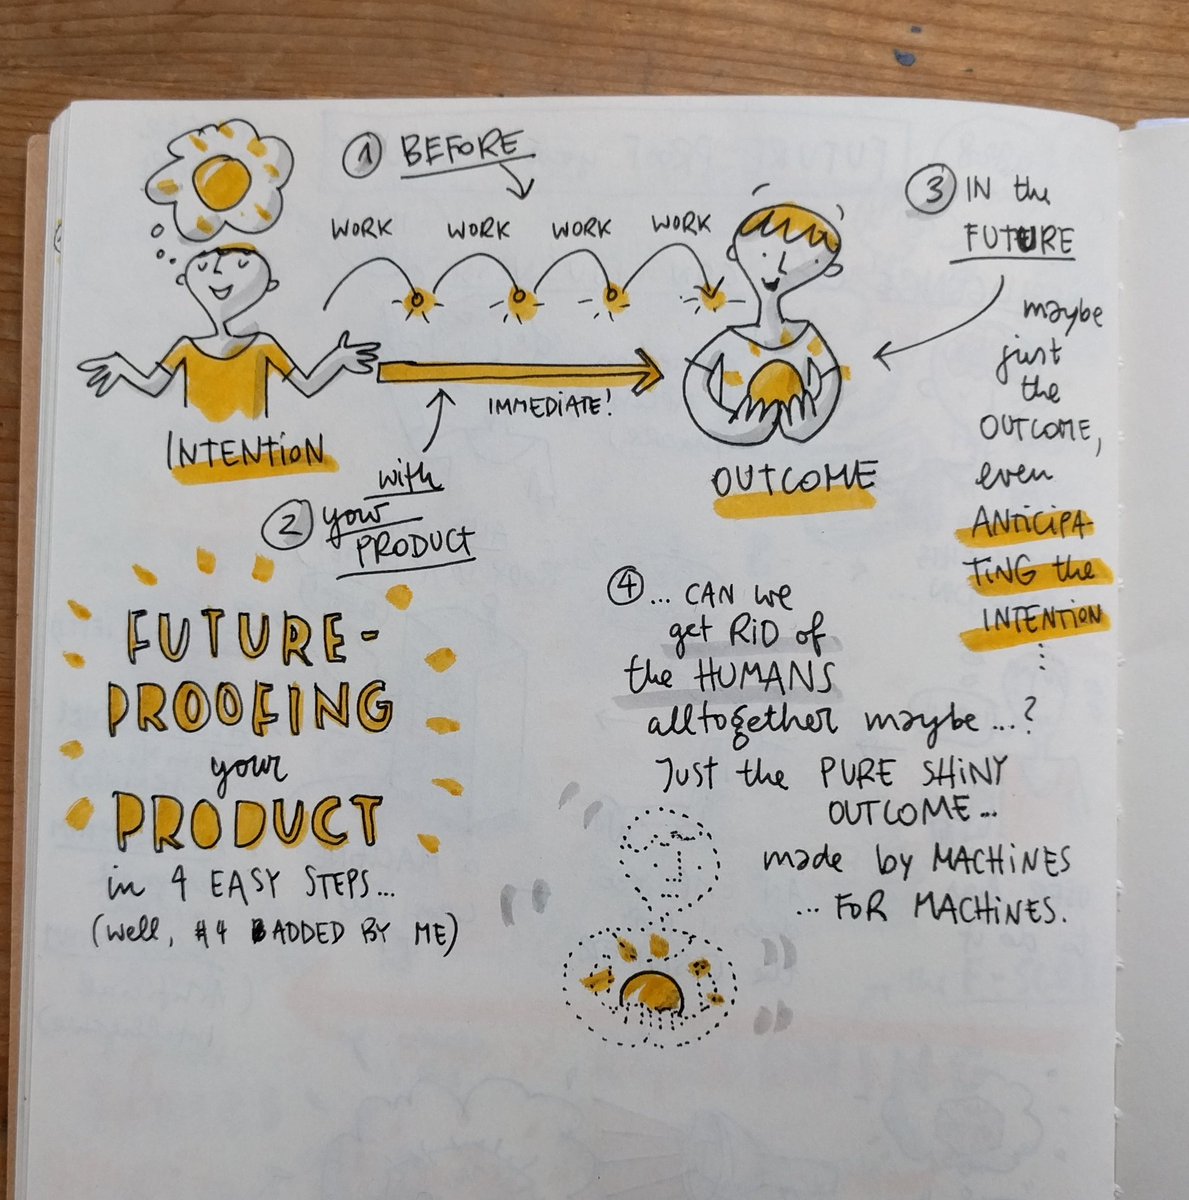 1 BEFORE
WORK WORK WORK WORK
INTENTION
IMMEDIATE!
OUTCOME
2 with
your
PRODUCT
3 IN the
FUTURE
maybe
just
the
OUTCOME,
even
ANTICIPA-
TING the
INTENTION
...
4 ... CAN we
get RID of
the HUMANS
alltogether maybe ...?
Just the PURE SHINY
OUTCOME...
made by MACHINES
... FOR MACHINES.
FUTURE-
PROOFING
your
PRODUCT
in 4 EASY STEPS...
(well, #4 ADDED BY ME)